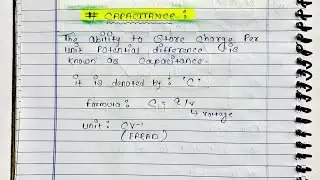 # CAPACITANCE :
The ability to Store charge Per
Unit Potential difference is
known as Capacitance.
it is denoted by : 'C'.
formula : C = q/v
↳ voltage
unit : CV⁻¹
(FARAD)